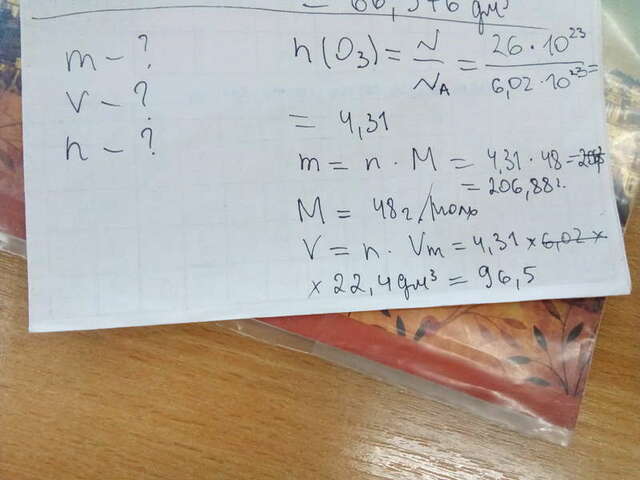 = 66,
m – ?
V – ?
n – ?
n(O₃) = N/Nₐ = 26 · 10²³ / 6,02 · 10²³ =
= 4,31
m = n · M = 4,31 · 48 =
= 206,88г.
M = 48г/моль
V = n · Vm = 4,31 × 6,02 ×
× 22,4 дм³ = 96,5